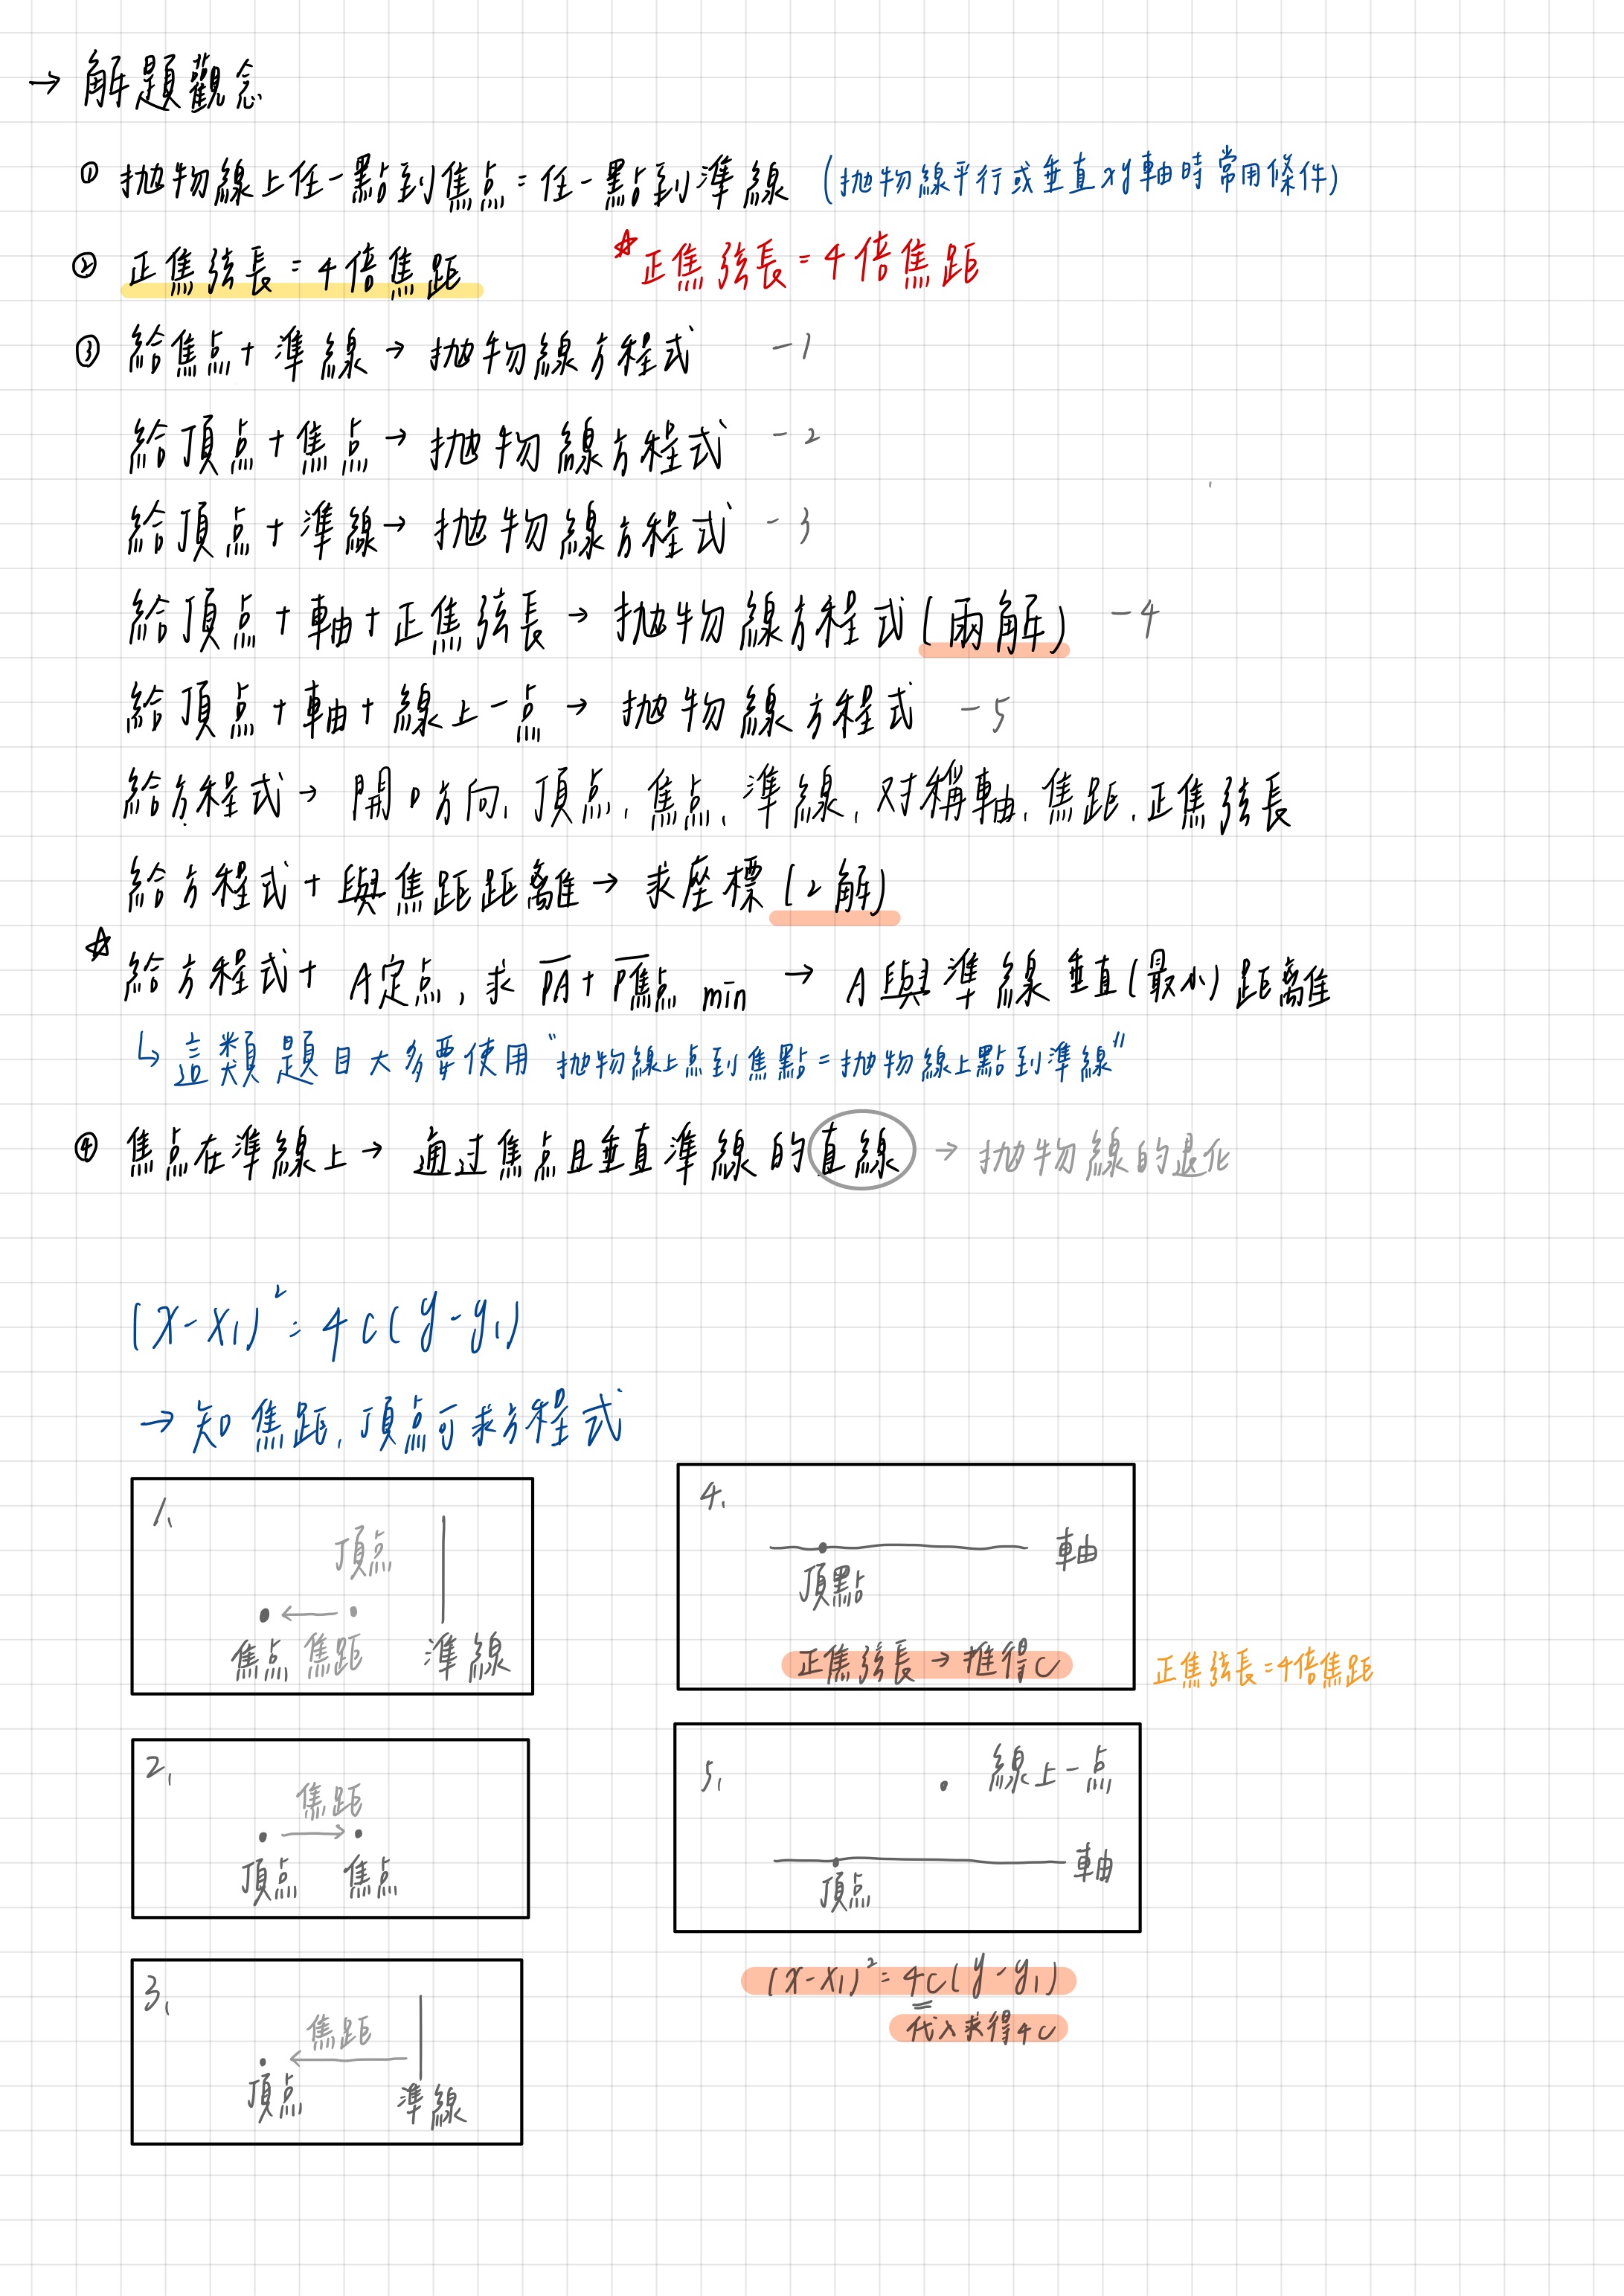 → 解題觀念
① 拋物線上任一點到焦点=任一點到準線 (拋物線平行或垂直xy軸時常用條件)
② 正焦弦長=4倍焦距 ☆正焦弦長=4倍焦距
③ 給焦点+準線→拋物線方程式 -1
給頂点+焦点→拋物線方程式 -2
給頂点+準線→拋物線方程式 -3
給頂点+軸+正焦弦長→拋物線方程式(兩解) -4
給頂点+軸+線上一点→拋物線方程式 -5
給方程式→開口方向,頂点,焦点,準線,对稱軸,焦距,正焦弦長
給方程式+與焦距距離→求座標(2解)
☆給方程式+A定点,求PA+P焦点 min → A與準線垂直(最小)距離
↳這類題目大多要使用"拋物線上点到焦點=拋物線上點到準線"
④ 焦点在準線上→通过焦点且垂直準線的直線→拋物線的退化
(x-x₁)²=4c(y-y₁)
→知焦距,頂点可求方程式
1.
頂点
焦点 焦距 準線
2.
焦距
頂点 焦点
3.
焦距
頂点 準線
4.
軸
頂點
正焦弦長→推得c
正焦弦長=4倍焦距
5.
線上一点
軸
頂点
(x-x₁)²=4c(y-y₁)
代入求得4c